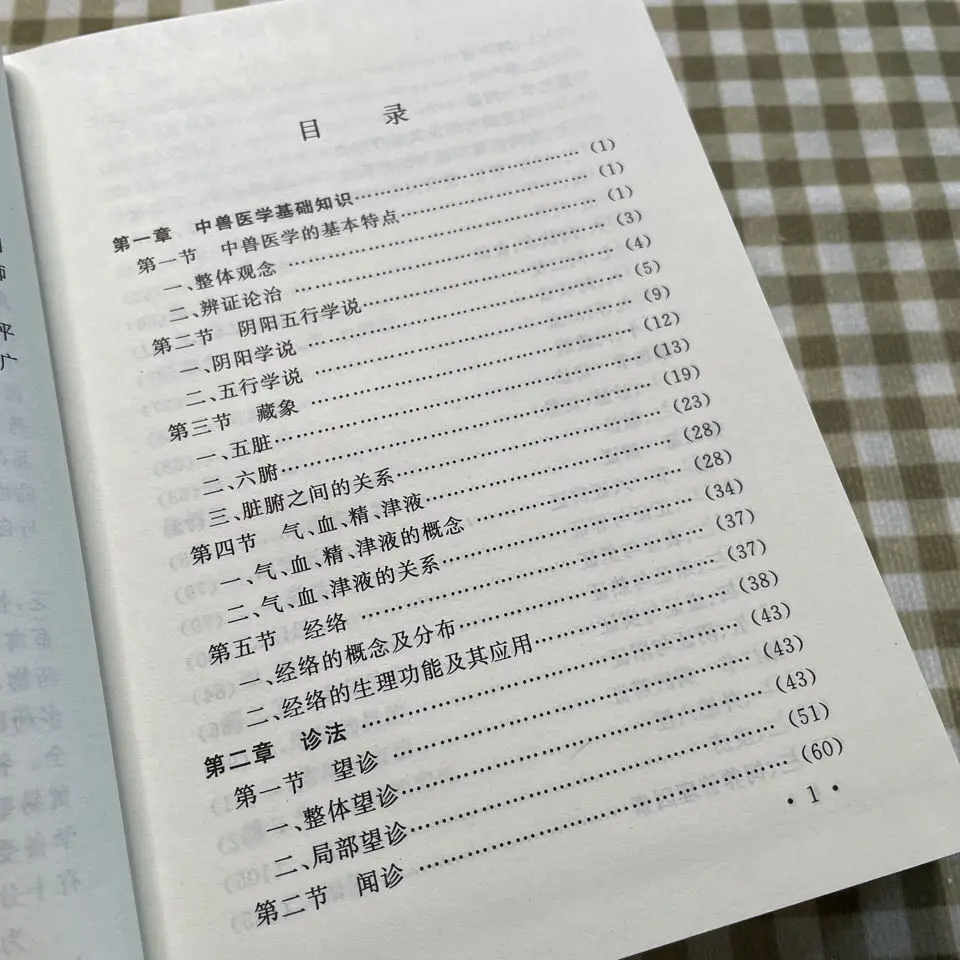 目 录
第一章 中兽医学基础知识……………………………(1)
第一节 中兽医学的基本特点……………………………(1)
一、整体观念……………………………(1)
二、辨证论治……………………………(3)
第二节 阴阳五行学说……………………………(4)
一、阴阳学说……………………………(5)
二、五行学说……………………………(9)
第三节 藏象……………………………(12)
一、五脏……………………………(13)
二、六腑……………………………(19)
三、脏腑之间的关系……………………………(23)
第四节 气、血、精、津液……………………………(28)
一、气、血、精、津液的概念……………………………(28)
二、气、血、津液的关系……………………………(34)
第五节 经络……………………………(37)
一、经络的概念及分布……………………………(37)
二、经络的生理功能及其应用……………………………(38)
第二章 诊法……………………………(43)
第一节 望诊……………………………(43)
一、整体望诊……………………………(43)
二、局部望诊……………………………(51)
第二节 闻诊……………………………(60)
• 1 •